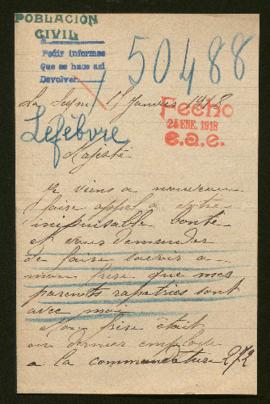 POBLACIÓN
CIVIL
Pedir informes
Que se hace así
Devolver
50488
La Seyne 17 Janvier 1918
Fecho
24 ENE. 1918
E.a.c.
Lefèbvre
Majesté
Je viens à nouveau
faire appel à votre
inépuisable bonté
et vous demander
de faire savoir à
mon frère que mes
parents rapatriés sont
avec moi
Mon frère était
au dernier employé
à la commandature 272